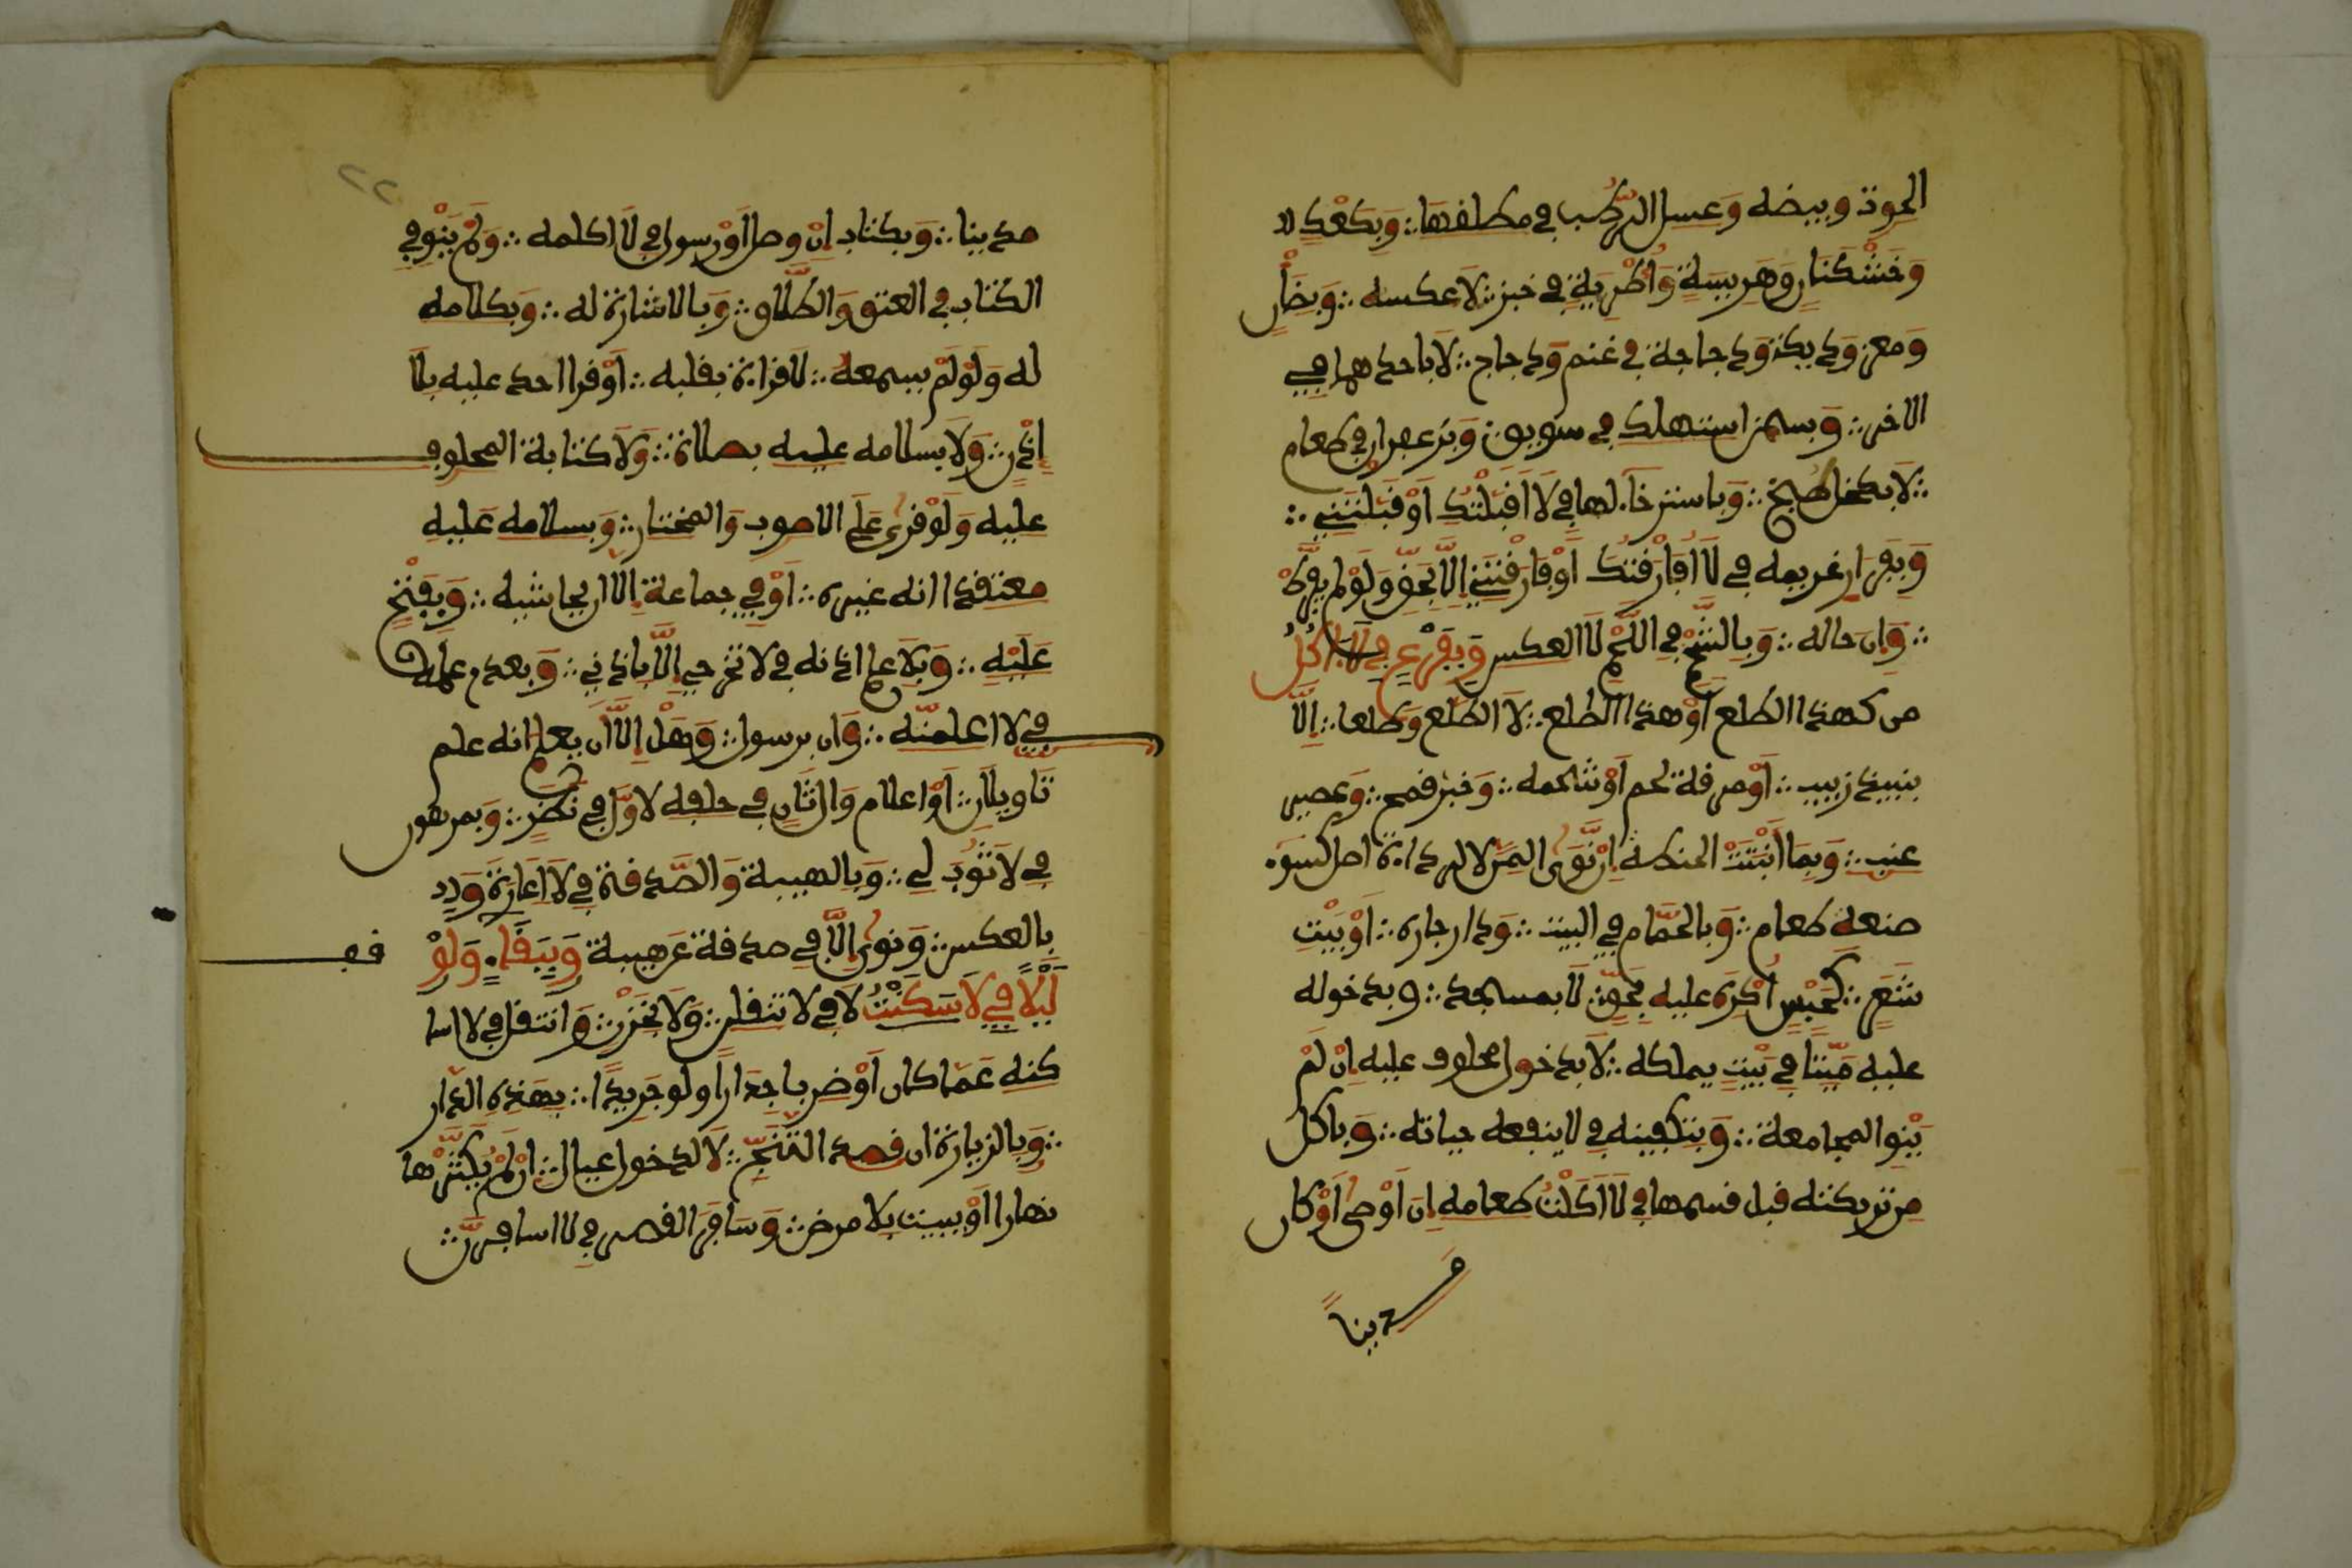 الحوت وبيضه وعسل الرطب في مطلقها وبكعك
وخشكنان وهريسة وإطرية في خبز لا عكسه وبضان
ومعز وديكة ودجاجة في غنم ودجاج لا باحدهما في
الاخر وبسمن استهلك في سويق وبزعفران في طعام
لا بكخل طبخ وباسترخاء لها في لا قبلتك أو قبلتني
وبفرار غريمه في لا فارقتك أو فارقتني إلا بحق ولو لم يفرط
وان احاله وبالشحم في اللحم لا العكس وبفرع في لا اكل
من كهذا الطلع أو هذا الطلع لا الطلع وطلعا إلا
بنبيذ زبيب أو مرقة لحم أو شحمه وخبز قمح وعصير
عنب وبما أنبتت الحنطة إن نوى المن لا لرداءة أو لسوء
صنعة طعام وبالحمام في البيت ودار جاره أو بيت
شعر كحبس أكره عليه بحق لا بمسجد وبدخوله
عليه ميتا في بيت يملكه لا بدخول محلوف عليه إن لم
ينو المجامعة وبتكفينه في لا ينفعه حياته وباكل
من تركته قبل قسمها في لا أكلت طعامه إن أوصى أو كان
مدينا
٢٢
مدينا وبكتاب إن وصل أو رسول في لا اكلمه ولم ينو في
الكتاب في العتق والطلاق وبالاشارة له وبكلامه
له ولو لم يسمعه لا قراءة بقلبه أو قرا احد عليه بلا
إذن ولا بسلامه عليه بصلاة ولا كتابة المحلوف
عليه ولو قرئ على الاصوب والمختار وبسلامه عليه
معتقدا انه غيره أو في جماعة إلا ان يحاشيه وبفتح
عليه وبلا علم اذنه في لا تخرجي إلا باذني وبعدم علمه
في لا اعلمنه وان برسول وهل إلا ان يعلم انه علم
تاويلان أو اعلام وال ثان في حلفه لاول في نظر وبمرهون
في لا ثوب لي وبالهبة والصدقة في لا أعاره و
بالعكس ونوى إلا في صدقة عن هبة وببقاء ولو
ليلا في لا سكنت لا في لا نتقلن ولا بخزن وانتقل في لا اسا
كنه عما كان أو ضربا جدارا ولو جريدا بهذه الدار
وبالزيارة ان قصد التنحي لا لدخول عيال ان لم يكثرها
نهارا أو يبيت بلا مرض وسافر القصر في لا اسافرن